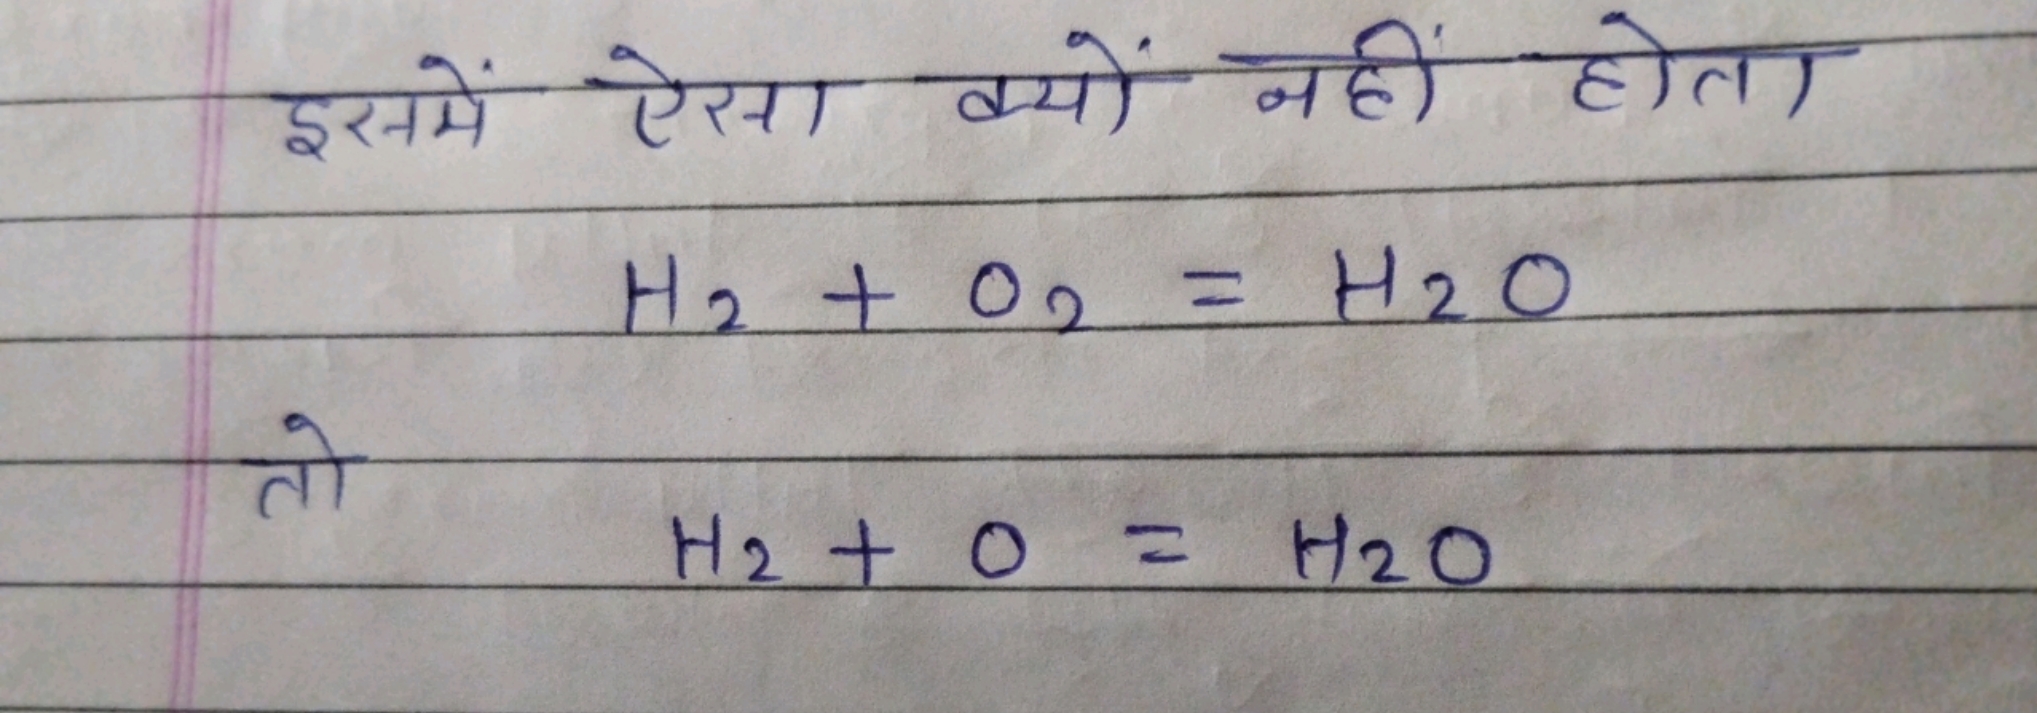 इसमें ऐसा क्यों नहीं होता
H2 + O2 = H2O
तो
H2 + O = H2O